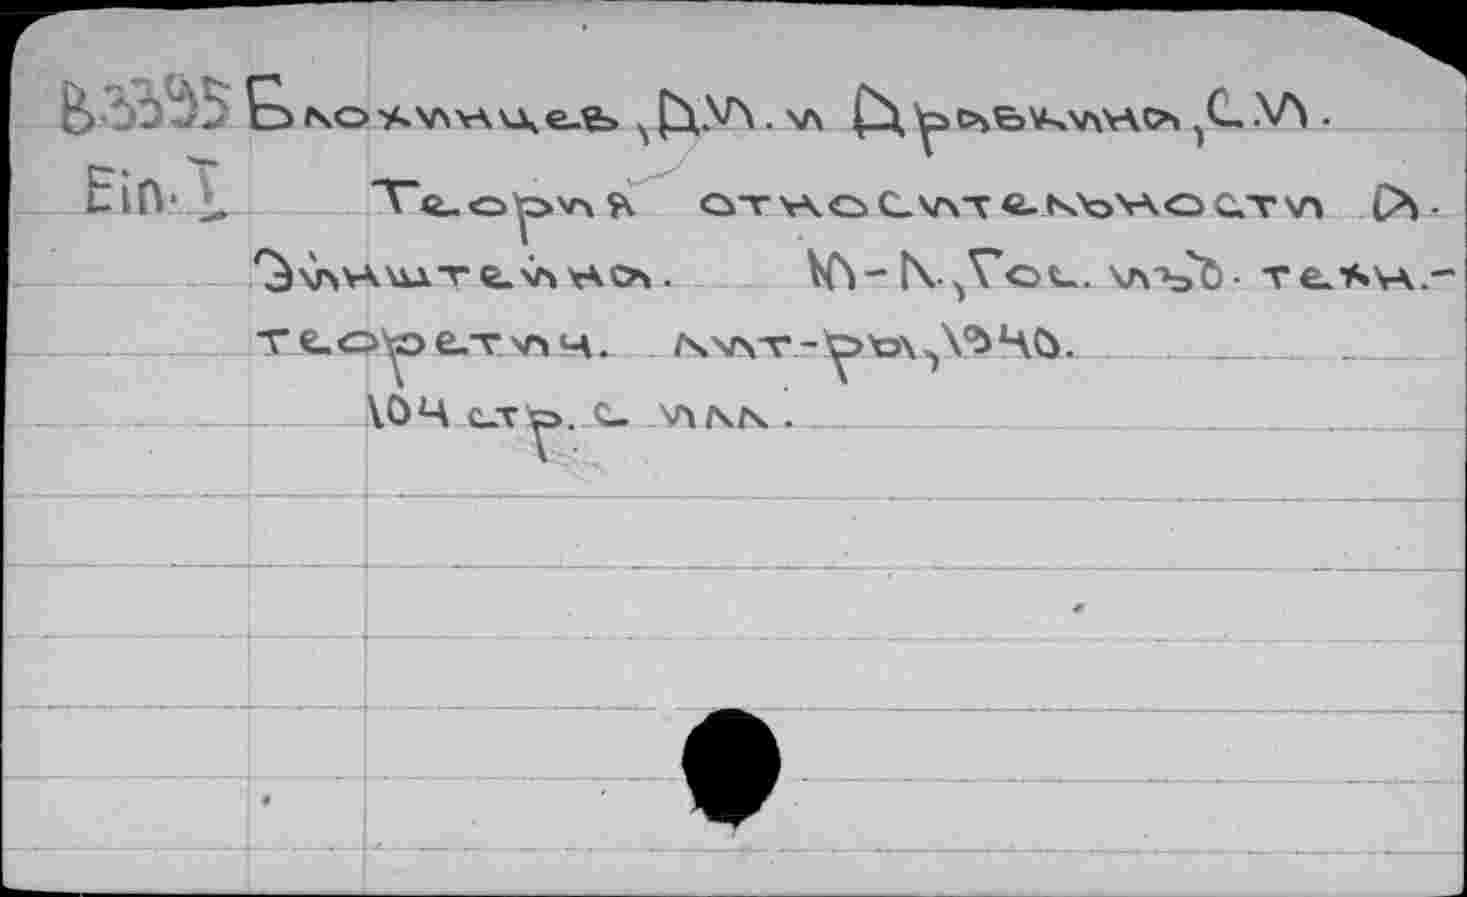 В.33395 Блохинцев, Д.И. и Драбкина, С.И.
Ein. I Теория относительности А.
Эйнштейна. М-Л., Гос. изд. техн.-
теоретич. лит-ры, 1940.
104 стр. с илл.